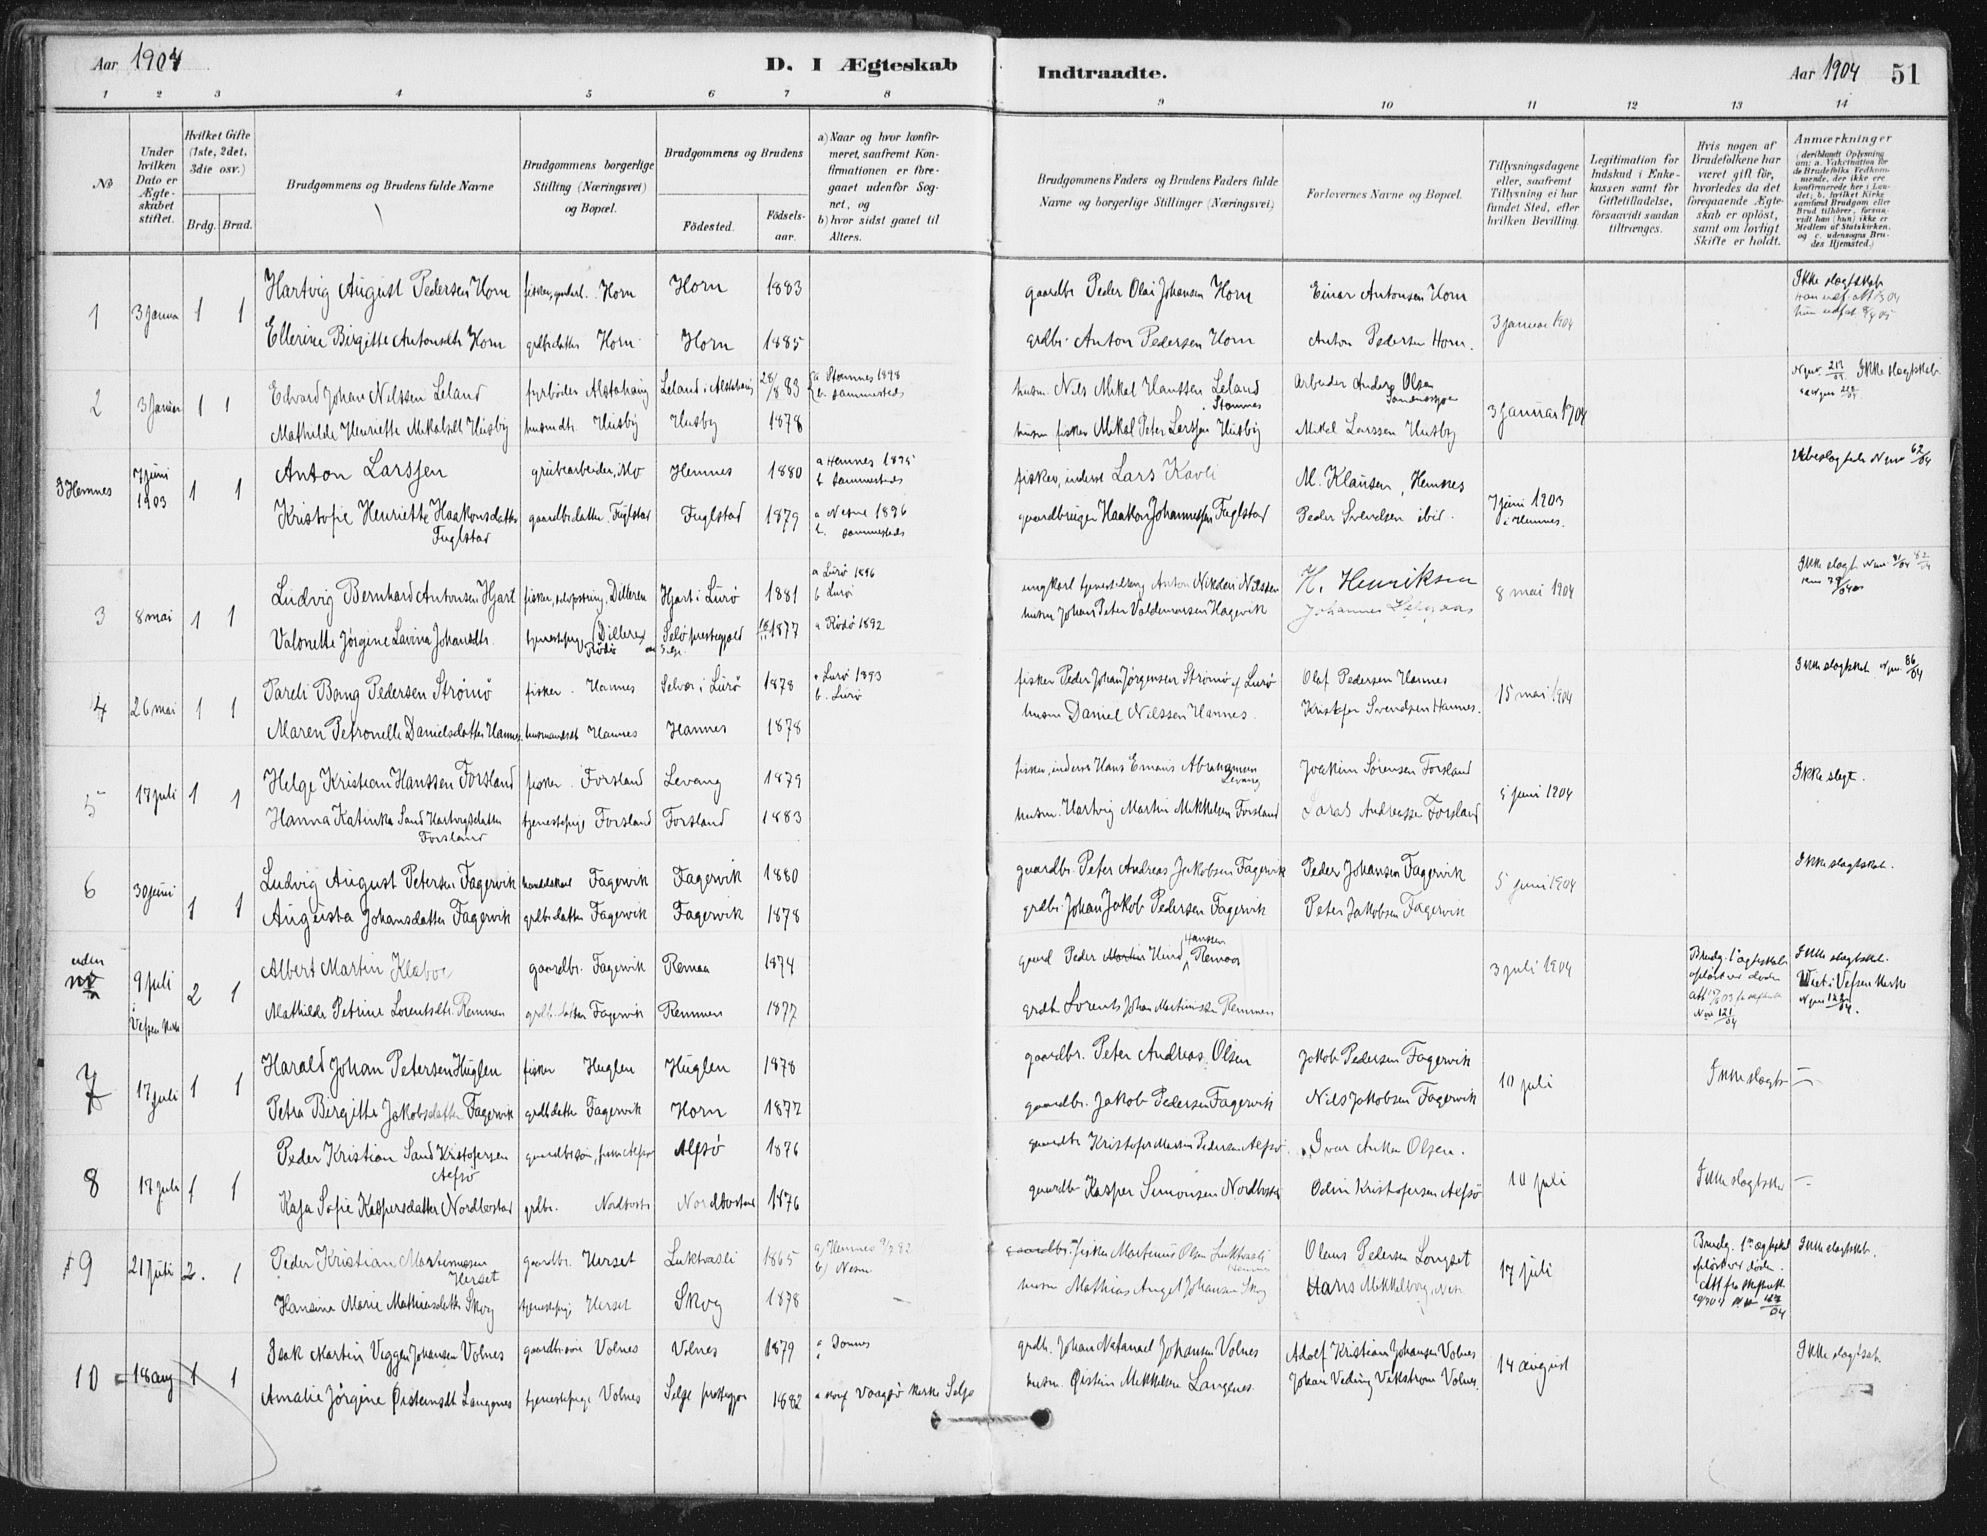 Aar 1904
D. I Ægteskab
Indtraadte.
Aar 1904 51
1 2 3 4 5 6 7 8
9 10 11 12 13 14
No
Under hvilken Dato er Ægteskabet stiftet.
Hvilket Gifte (1ste, 2det, 3die osv.)
Brdg. Brud.
Brudgommens og Brudens fulde Navne
Brudgommens borgerlige Stilling (Næringsvei) og Bopæl.
Brudgommens og Brudens
Fødested.
Fødselsaar.
a) Naar og hvor konfirmeret, saafremt Konfirmationen er foregaaet udenfor Sognet, og
b) hvor sidst gaaet til Alters.
Brudgommens Faders og Brudens Faders fulde Navne og borgerlige Stillinger (Næringsvei)
Forlovernes Navne og Bopæl.
Tillysningsdagene eller, saafremt Tillysning ei har fundet Sted, efter hvilken Bevilling.
Legitimation for Indskud i Enkekassen samt for Giftetilladelse, forsaavidt saadan tiltrænges.
Hvis nogen af Brudefolkene har været gift før, hvorledes da det foregaaende Ægteskab er opløst, samt om lovligt Skifte er holdt.
Anmærkninger
(deriblandt Oplysning om: a. Vakcination for de Brudefolks Vedkommende, der ikke ere konfirmerede her i Landet; b. hvilket Kirkesamfund Brudgom eller Brud tilhører, forsaavidt han (hun) ikke er Medlem af Statskirken, og c. udensogns Brudes Hjemsted.)
1 3 Januar 1 1 Hartvig August Pedersen Horn Horn Horn 1883 gaardbr Peder Olai Johansen Horn Einar Antonsen Horn Ikke slægtskab
Ellerine Birgitte Antonsdtr Horn grdbrdatter Horn Horn 1885 grdbr. Anton Pedersen Horn Anton Pedersen Horn. 3 januar 1904
2 3 Januar 1 1 Edvard Johan Nilssen Leland fyrbøder Alstahaug Leland i Alstahaug 28/8 83 a Stamnes 1898 b. sammesteds husm. Nils Mikal Hanssen Leland Stamnes Arbeider Anders Olsen Ikke slægtskab
Mathilde Henriette Mikalsdt Husby husmdtr. Husby Husby 1878 husm fisker Mikal Peter Larssen Husby Mikal Larssen Husby 3 januar 1904
3 Hemnes 7 juni 1903 1 1 Anton Larssen grubearbeider, Mo Hemnes 1880 a Hemnes 1895 b sammesteds fisker, inderst Lars Kavli M. Klausen, Hemnes 62/04
Kristofie Henriette Haakonsdatter Fuglstad gaardbrdatter Fuglstad Fuglstad 1879 a Nesne 1896 b. sammesteds gaardbruger Haakon Johannessen Fuglstad Peder Svendsen ibid. 7 juni 1903 i Hemnes.
3 8 mai 1 1 Ludvig Bernhard Antonsen Hjart Hjart i Lurø 1881 a Lurø 1896 b Lurø ungkarl Anton Nikolai Nilssen H. Henriksen 8 mai 1904 Ikke slægt
Valonette Jørgine Lavina Johansdtr. tjenestepige Dilleren Rödö 1877 a Rödö 1892 husm Johan Peter Valdemarsen Hagevik Johannes
4 26 mai 1 1 Pareli Bang Pedersen Strømø fisker. Hannes Selvær i Lurø 1878 a Lurø 1893 b. Lurø fisker Peder Johan Jørgensen Strømø af Lurø Olaf Pedersen Hannes 15 mai 1904 Ikke slægtskab 86/04
Maren Petronelle Danielsdatter Hannes husmandsdt Hannes Hannes 1878 husm Daniel Nilssen Hannes. Kristofer Svendsen Hannes.
5 17 juli 1 1 Helge Kristian Hanssen Forsland fisker. Forsland Levang 1879 fisker, inderst Hans Emaus Abrahamsen Levang Joakim Sørensen Forsland 5 juni 1904 Ikke slægt.
Hanna Katinka Sand Hartvigsdatter Forsland tjenestepige Forsland Forsland 1883 husm. Hartvig Martin Mikkelsen Forsland Andreassen Forsland
6 30 juni 1 1 Ludvig August Petersen Fagervik Fagervik Fagervik 1880 gaardbr. Peter Andreas Jakobsen Fagervik Peder Johansen Fagervik 5 juni 1904 Ikke slægtskab.
Augusta Johansdatter Fagervik grdbrdatter Fagervik Fagervik 1878 grdbr. Johan Jakob Pedersen Fagervik Peter Jakobsen Fagervik
uden nr 9 juli i Vefsen kirke 2 1 Albert Martin Klabo gaardbr. Fagervik Remaa 1874 gaard Peder Hanssen Remaas 3 juli 1904 Brudg. 1ste ægteskab opløst ved døden 121/04 Ikke slægtskab. Viet i Vefsen kirke 122/04.
Mathilde Petrine Lorentsdtr. Remmen Fagervik Remmen 1877 grdbr Lorents Johan Martinussen Remmen
7 17 juli 1 1 Harald Johan Petersen Huglen fisker Huglen Huglen 1878 gaardbr. Peter Andreas Olsen Jakob Pedersen Fagervik 10 juli Ikke slægtsk —
Petra Bergitte Jakobsdatter Fagervik Fagervik Horn 1877 gaardbr. Jakob Pedersen Fagervik Nils Jakobsen Fagervik
8 17 juli 1 1 Peder Kristian Sand Kristofersen Alfsø Alfsø 1876 gaardbr Kristofer Martin Pedersen Alfsø. Ivar Anton Olsen. 10 juli Ikke slægtsk —
Kaja Sofie Kaspersdatter Nordbostad grdbr. Nordbostad 1876 gaardbr Kasper Simonsen Nordbostad Odin Kristofersen Alfsø
9 21 juli 2. 1 Peder Kristian Martinussen Herset gaardbr. Herset Luktvasli 1865 a) Hemnes b) Nesne fisker Martinus Olsen Luktvasli Olaus Pedersen Longset 17 juli Brudg. 1ste ægteskab opløst ved døden. Ikke slægtskab.
Hansine Marie Mathiasdatter Skog tjenestepige Herset Skog 1878 husm Mathias Angel Johansen Skog Hans Mikkelborg, Nesne
10 18 aug 1 1 Isak Martin Viggen Johansen Volnes gaardbrsøn Volnes Volnes 1879 a Dønnes grdbr. Johan Natanael Johansen Volnes Adolf Kristian Johansen Volnes 14 august Ikke slægtsk.
Amalie Jørgine Øisteinsdt Langenes tjenestepige Volnes Selje prestegj 1882 Vaagsø kirke Selje husm. Øistein Mikkelsen Langenes Johan Veding Vikstrøm Volnes.